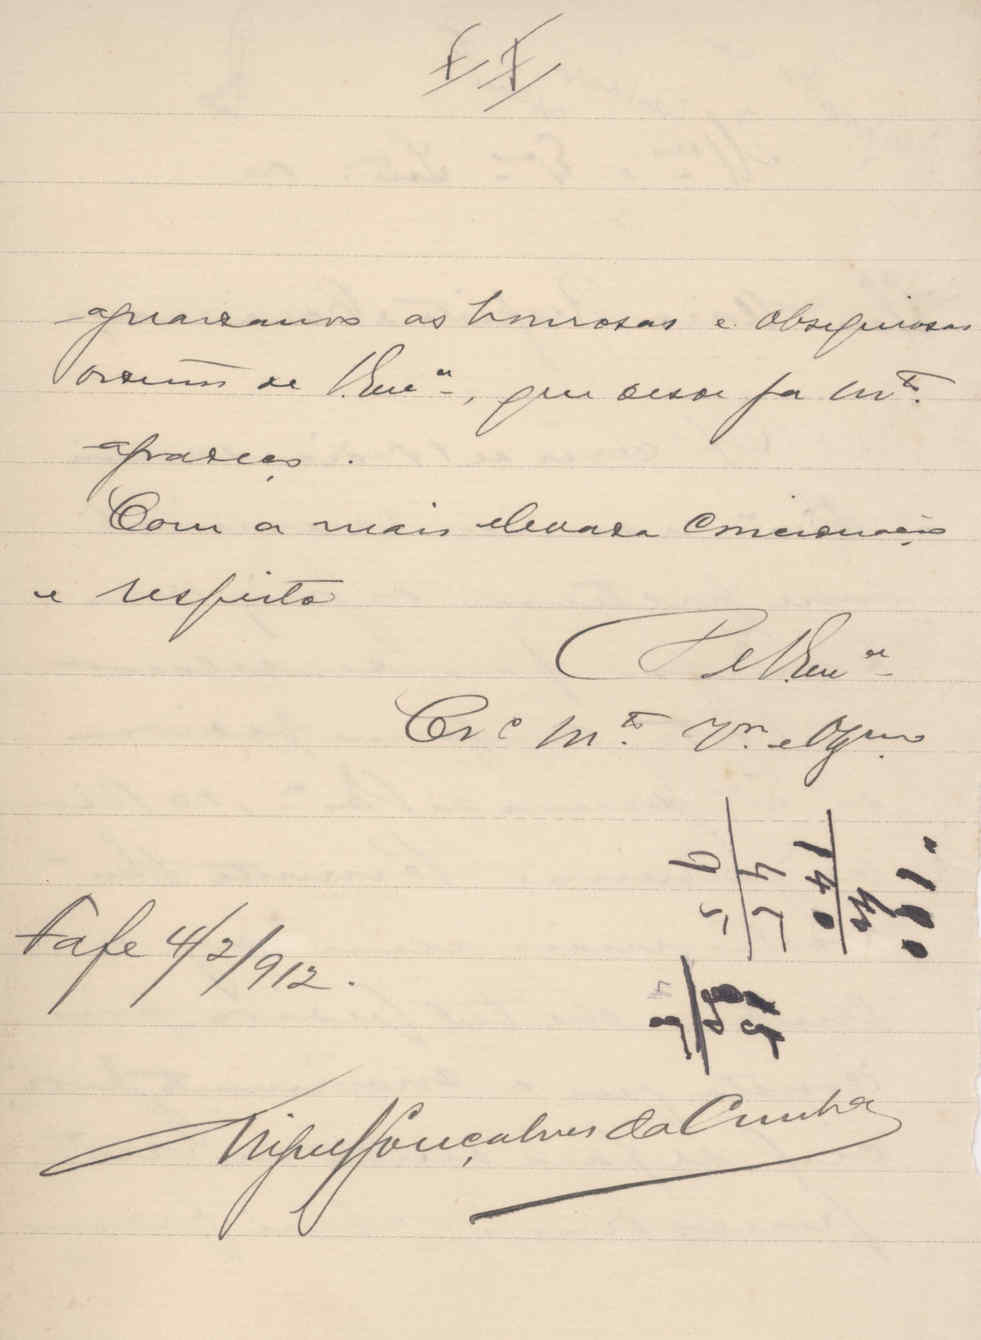 aguardamos as honrosas e obsequiosas
ordens de V. Exᵃ, que desde já mᵗᵒ
agradeço.
Com a mais elevada consideração
e respeito
De V. Exᵃ
Crᵒ Mᵗᵒ Vᵒʳ e Obgᵐᵒ
Fafe 4/2/912.
Miguel Gonçalves da Cunha